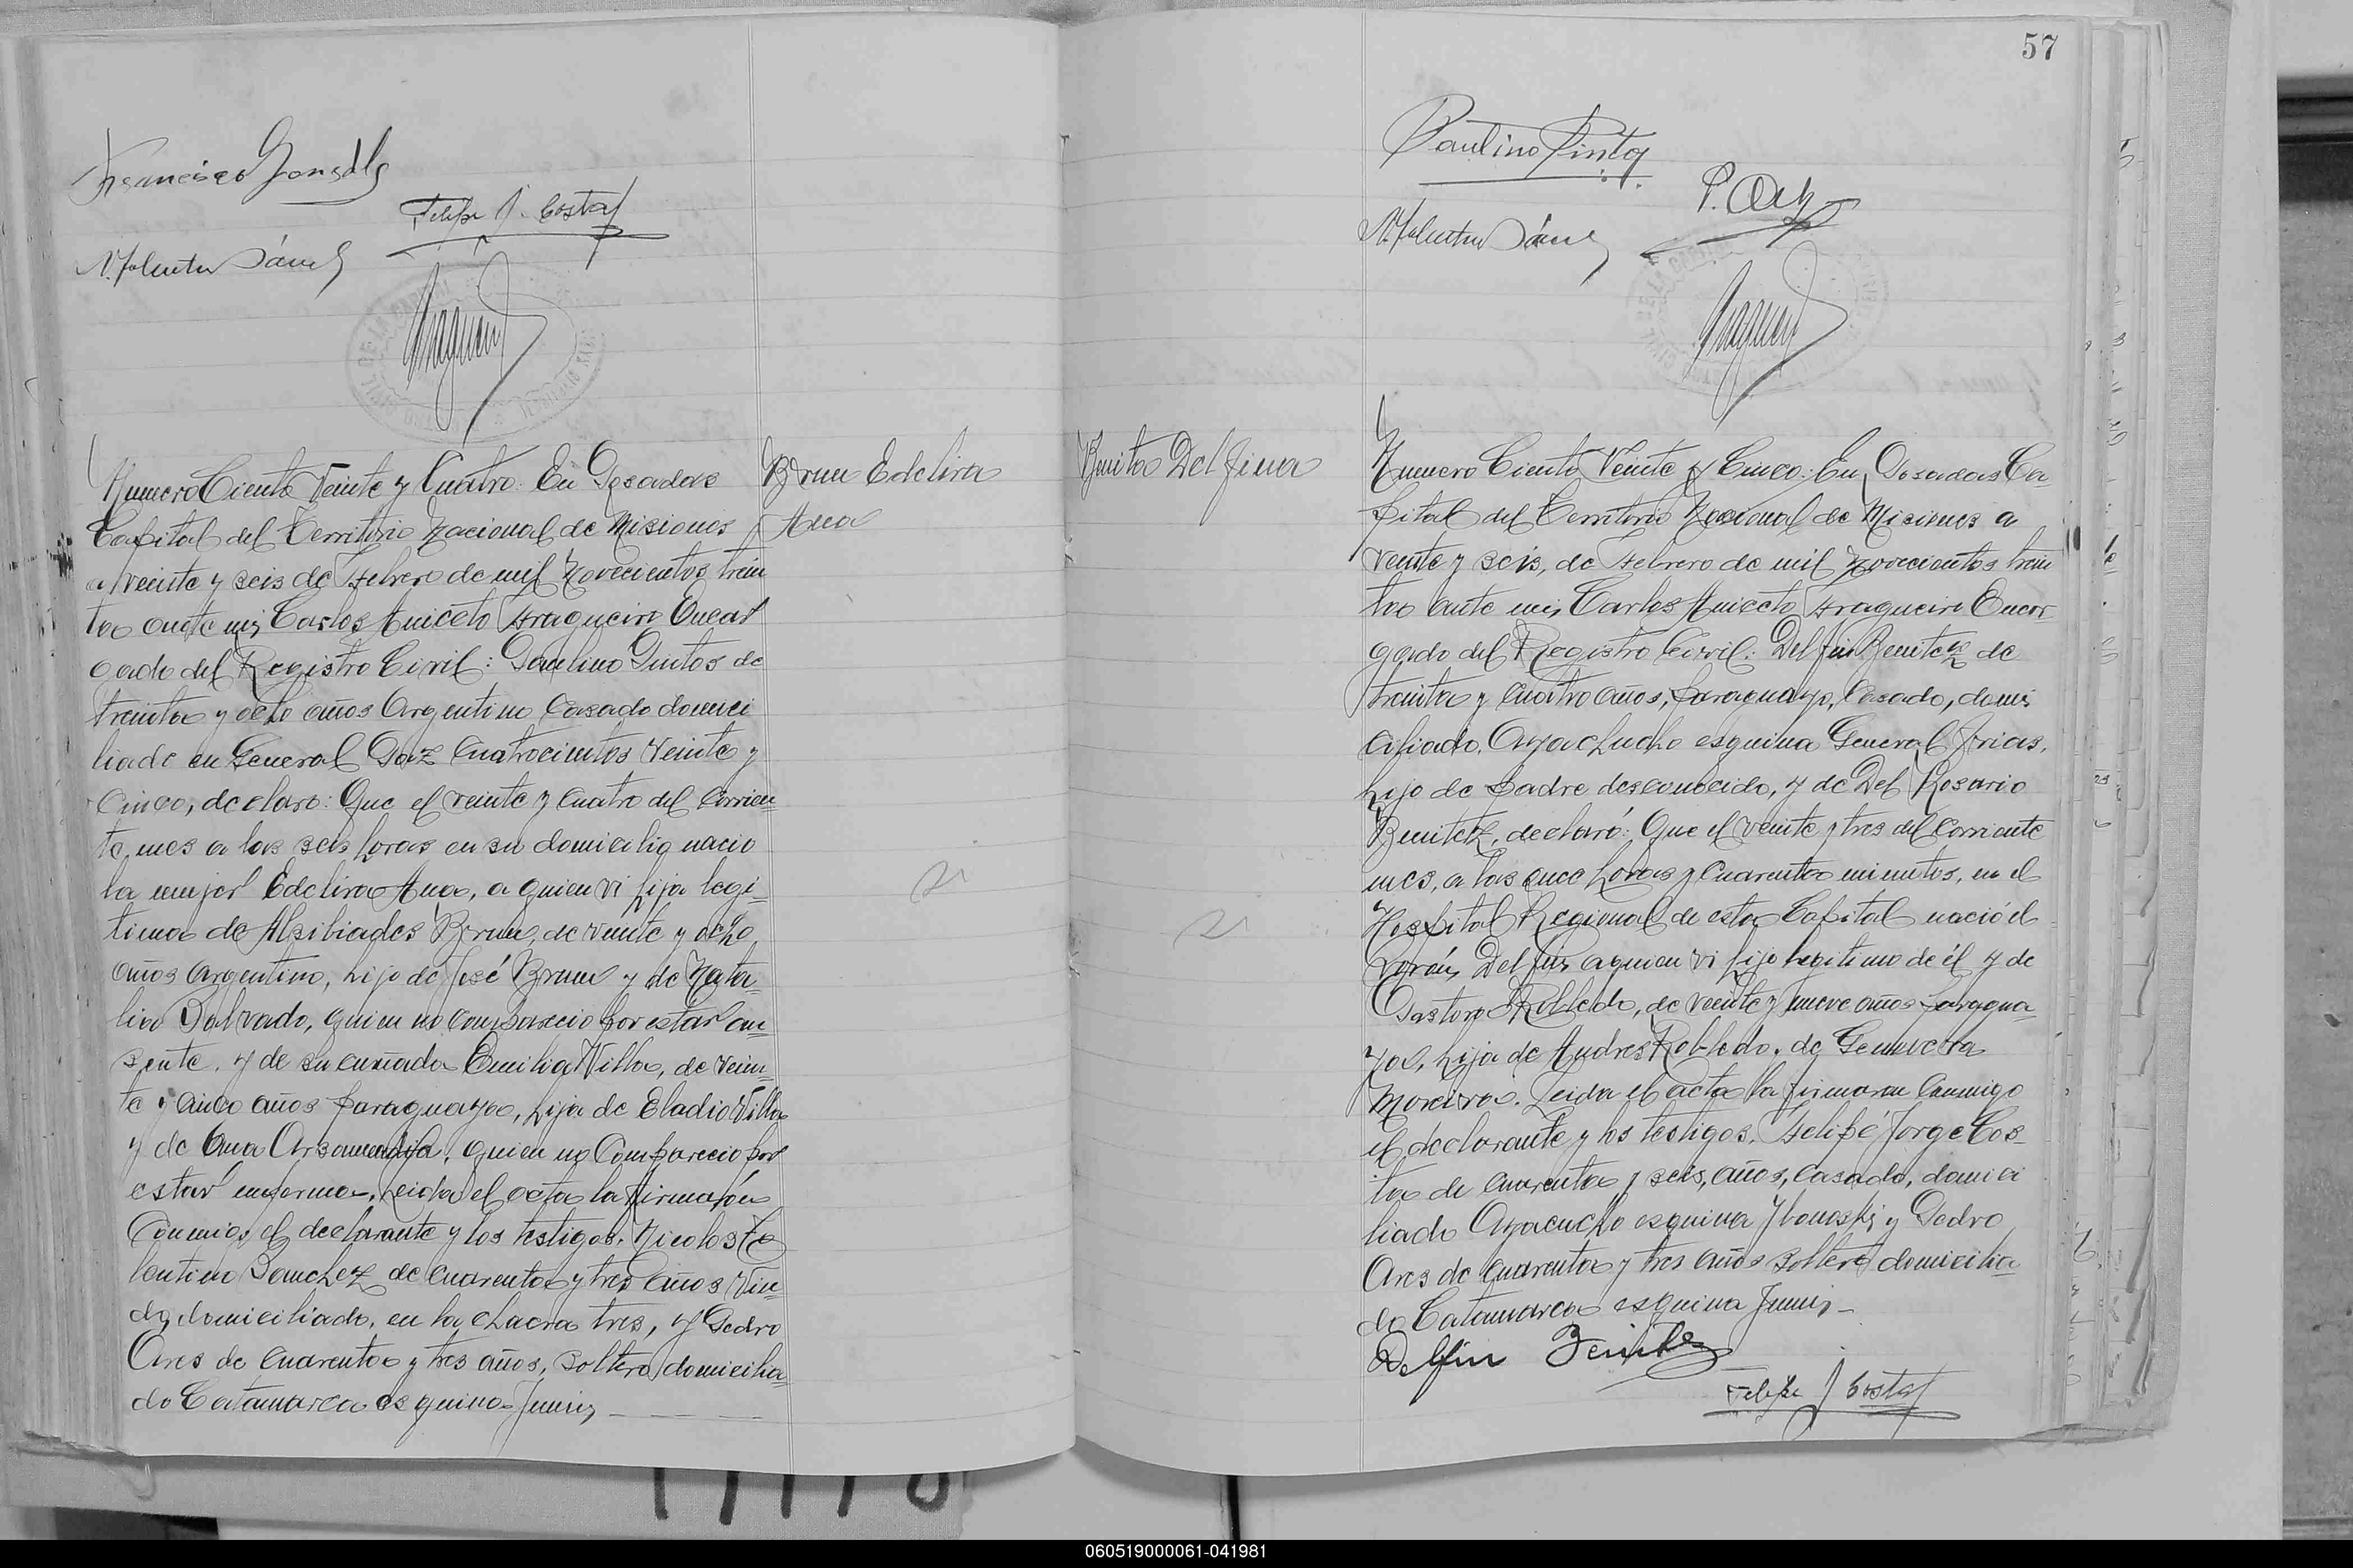 Francisco Gonzalez
Felipe J. Costa
N. Tolentino Sánchez
Numero Ciento Veinte y Cuatro: En Posadas
Capital del Territorio Nacional de Misiones
a veinte y seis de Febrero de mil Novecientos trein
ta ante mi, Carlos Aniceto Fragueiro Encar
gado del Registro Civil: Paulino Pintos de
treinta y ocho años Argentino Casado domici
liado en General Paz Cuatrocientos Veinte y
Cinco, declaro: Que el veinte y Cuatro del Corrien
te, mes a las seis horas en su domicilio nacio
la mujer Edelira Ana, a quien vi hija legi
tima de Alsibiades Brum, de veinte y ocho
años Argentino, hijo de José Brum y de Nata
lia Salvado, quien no Comparecio por estar au
sente, y de su cuñada Emilia Villa, de vein
te y Cinco años paraguaya, hija de Eladio Villa
y de Ana Arsamendia, quien no Comparecio por
estar enferma. Leida el acta la firmarón
Conmigo, el declarante y los testigos. Nicolas To
lentino Sanchez de Cuarenta y tres años Viu
do, domiciliado, en la chacra tres, y Pedro
Ares de Cuarenta y tres años, Soltero domicilia
do Catamarca esquina Junin
Brum Edelira
Ana
57
Paulino Pintos
P. Ares
N. Tolentino Sánchez
Benita Delfina
Numero Ciento Veinte y Cinco: En Posadas Ca
pital del Territorio Nacional de Misiones a
veinte y seis, de Febrero de mil Novecientos trein
ta ante mi, Carlos Aniceto Fragueiro Encar
gado del Registro Civil: Delfin Benitez de
treinta y Cuatro años, paraguayo, Casado, domi
ciliado, Ayachucho esquina General Frias,
hijo de padre desconocido, y de Del Rosario
Benitez, declaró: Que el veinte y tres del Corriente
mes, a las once horas y Cuarenta minutos, en el
Hospital Regional de esta Capital nació el
Varón, Delfin, a quien vi hijo legitimo de él y de
Pastora Robledo, de veinte y nueve años paragua
ya, hija de Andres Robledo, de Genoveva
Moreira. Leida el acta la firmaron Conmigo
el declarante y los testigos, Felipe Jorge Cos
ta de Cuarenta y seis, años, Casado, domici
liado Ayacucho esquina y Pedro
Ares de Cuarenta y tres años soltero domicilia
do Catamarca esquina Junin
Delfin Benitez
Felipe J Costa
060519000061-041981